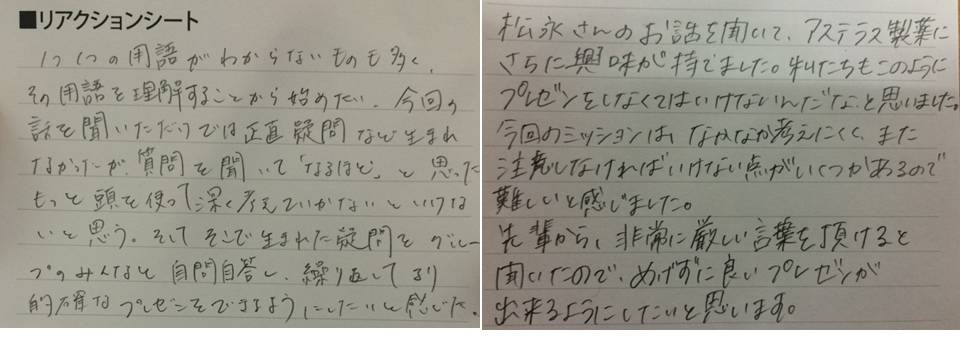 ■リアクションシート
1つ1つの用語がわからないものも多く、
その用語を理解することから始めたい。今回の
話を聞いただけでは正直疑問など生まれ
なかったが、質問を聞いて「なるほど」と思った
もっと頭を使って深く考えていかないといけな
いと思う。そしてそこで生まれた疑問をグルー
プのみんなと自問自答し、繰り返してより
的確なプレゼンをできるようにしたいと感じた。
松永さんのお話を聞いて、アステラス製薬に
さらに興味が持てました。私たちもこのように
プレゼンをしなくてはいけないんだな、と思いました。
今回のミッションは、なかなか考えにくく、また
注意しなければいけない点がいくつかあるので
難しいと感じました。
先輩から、非常に厳しい言葉を頂けると
聞いたので、めげずに良いプレゼンが
出来るようにしたいと思います。